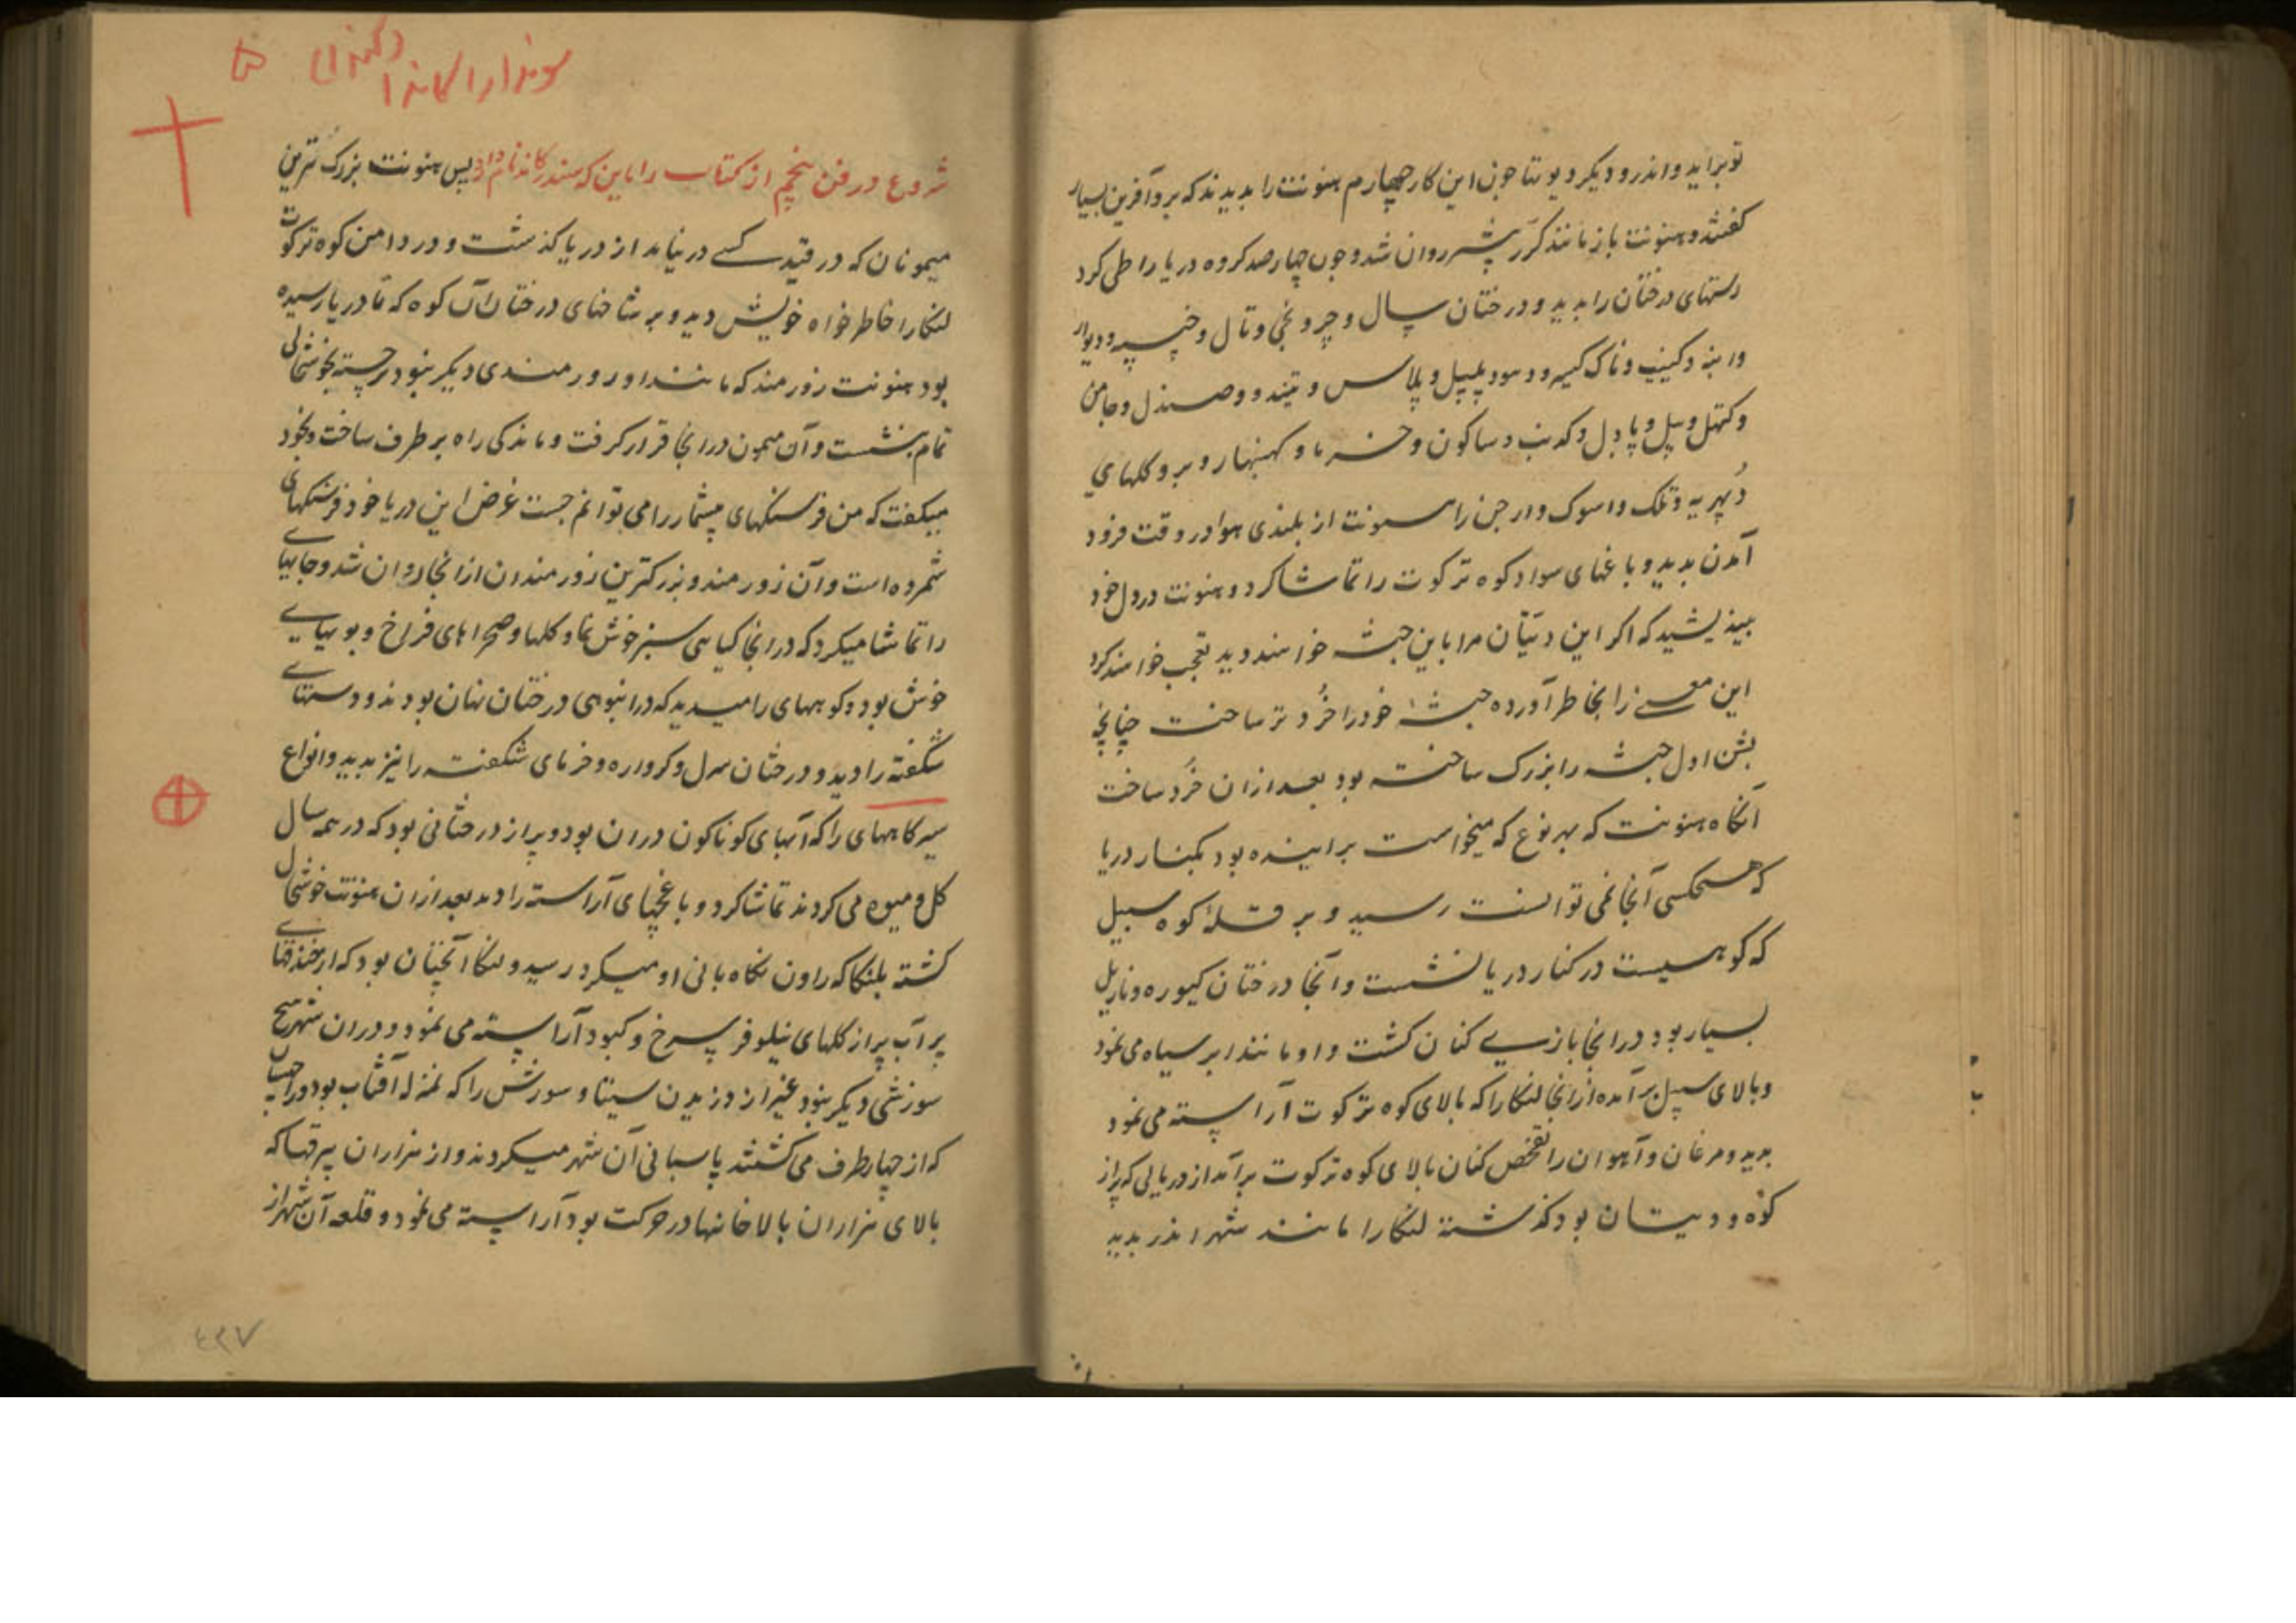 تو براید و اندر و دیگر دیوتتا چون این کار چهارم هنونت را بدیدند که برو آفرین بسیار
گفتند و هنونت باز مانند گرر پیشتر روان شد و چون چهار صد کروه دریا را طی کرد
رستهای درختان را بدید و درختان سال و چر و نجی و تال و چنپه و دیودار
وکتهل و پیل و پادل و کدنب و ساکون و خرما و کهنبهار و بر و گلهای
دپهریه و تلک و اسوک و ارجن را هنونت از بلندی هوا در وقت فرود
آمدن بدید و باغهای سواد کوه ترکوت را تماشا کرد و هنونت در دل خود
بیندیشید که اگر این دیتان مرا باین جثه خواهند دید تعجب خواهند کرد
این معنی را بخاطر آورده جثهٔ خود را خرد تر ساخت چنانچه
بشن اول جثه را بزرگ ساخته بود بعد از ان خرد ساخت
آنگاه هنونت که بهر نوع که میخواست براینده بود بکنار دریا
که هیچکسی آنجا نمی توانست رسید و بر قلهٔ کوه سبیل
که کوهیست در کنار دریا نشست و آنجا درختان کیوره و ناریل
بسیار بود در انجا بازی کنان گشت و او مانند ابر سیاه می نمود
و بالای سبیل بر آمده از انجا لنکا را که بالای کوه ترکوت آراسته می نمود
بدید و مرغان و آهوان را تفحص کنان بالای کوه ترکوت برآمد از دریایی که پر از
کوه و دیتان بود گذشته لنکا را مانند شهر اندر بدید
سوندارا کاندا
۵
شروع در فن پنجم از کتاب راماین که سندر کاند نام دارد پس هنونت بزرگ ترین
میمونان که در قید کسے در نیاید از دریا گذشت و در دامن کوه ترکوت
لنکا را خاطر خواه خویش دید و بر شاخهای درختان آن کوه که تا دریا رسیده
بود هنونت زورمند که مانند او زورمندی دیگر نبود برجسته بخوشحالی
تمام بنشست و آن میمون در انجا قرار گرفت و ماندگی راه بر طرف ساخت و بخود
میگفت که من فرسنگهای بیشمار را می توانم جست غرض این دریا خود فرسنگهای
شمرده است و آن زورمند و بزرگترین زورمندان از انجا روان شد و جایهای
را تماشا میکرد که در انجا گیاهی سبز خوش نما و گلها و صحراهای فراخ و بویهای
خوش بود و کوههای را میدید که در انبوهی درختان نهان بودند و رستهای
شگفته را دید و درختان سرل و کرواره و خرمای شگفته را نیز بدید و انواع
سیرگاههای را که آبهای گوناگون در ان بود و پر از درختانی بود که در همه سال
گل و میوه می کردند تماشا کرد و باغچهای آراسته را دید بعد از ان هنونت خوشحال
گشته بلنکا که راون نگاه بانی او میکرد رسید و لنکا آنچنان بود که از خندقهای
پر آب پر از گلهای نیلوفر سرخ و کبود آراسته می نمود و در ان شهر هیچ
سوزشی دیگر نبود غیر از دزدیدن سیتا و سوزش را که بمنزله آفتاب بود
که از چهار طرف می گشتند پاسبانی آن شهر میکردند و از هزاران بیرقها که
بالای هزاران بالاخانها در حرکت بود آراسته می نمود و قلعه آن شهر از
٤٢٧